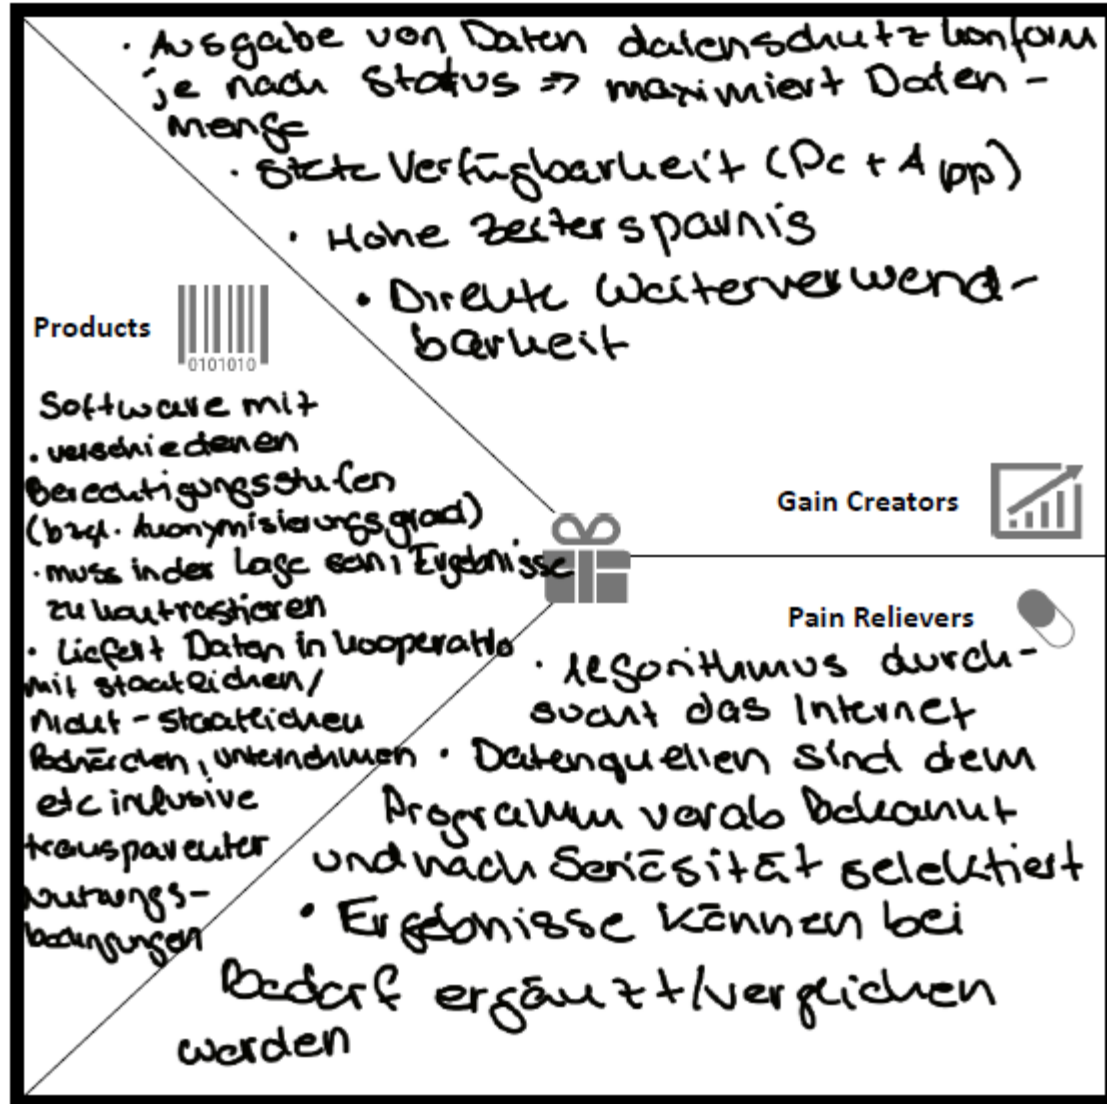 · Ausgabe von Daten datenschutzkonform
je nach Status => maximiert Daten-
menge
· stete Verfügbarkeit (Pc + App)
· Hohe Zeitersparnis
· Direkte Weiterverwend-
barkeit
Products
0101010
Software mit
· verschiedenen
Berechtigungsstufen
(bzgl. Anonymisierungsgrad)
· muss in der Lage sein, Ergebnisse
zu kontrastieren
· Liefert Daten in Kooperatio
mit staatlichen/
nicht-staatlichen
Behörden, unternehmen
etc inklusive
transparenter
Nutzungs-
bedingungen
Gain Creators
Pain Relievers
· Algorithmus durch-
sucht das Internet
· Datenquellen sind dem
Programm vorab bekannt
und nach Seriösität selektiert
· Ergebnisse können bei
Bedarf ergänzt/verglichen
werden